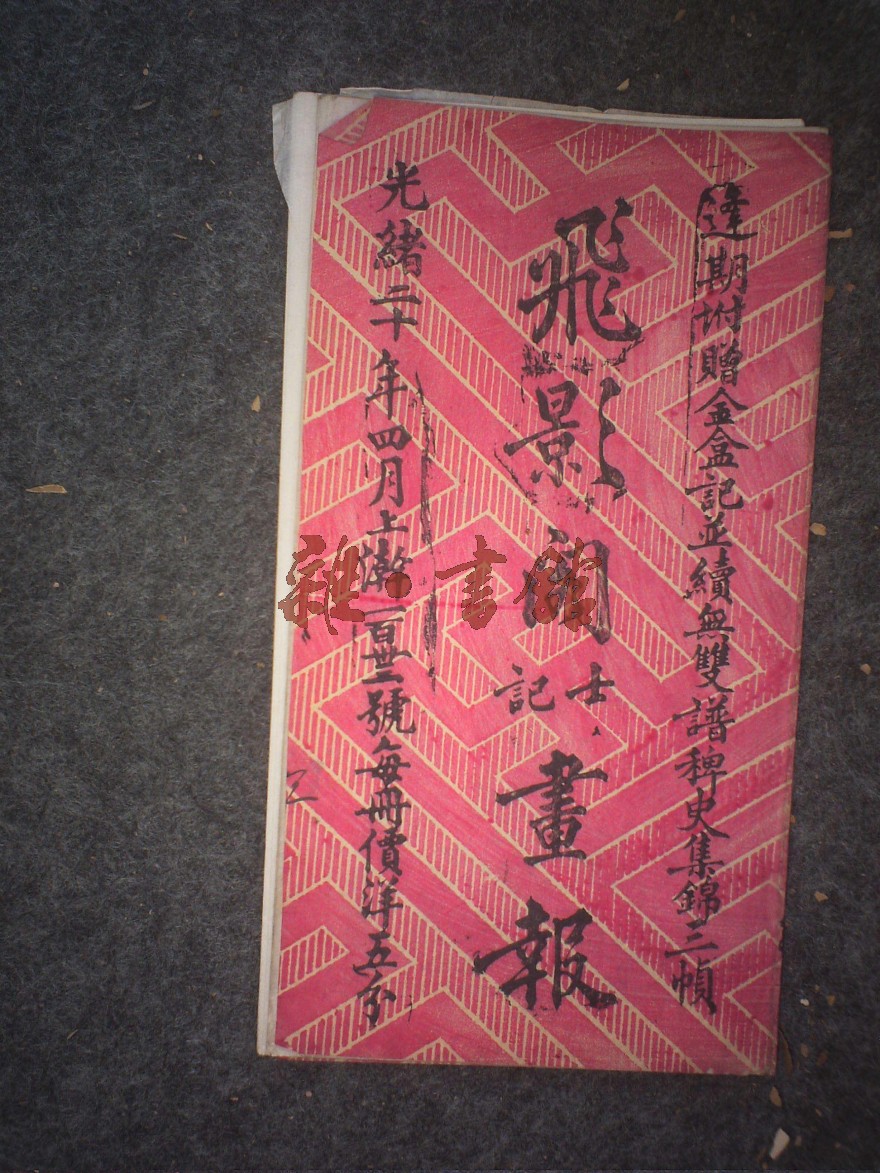 逢期附贈金盒記並續無雙譜稗史集錦三幀
飛影閣士記畫報
光緒二十年四月上澣一百卅二號每冊價洋五分
雜·書館